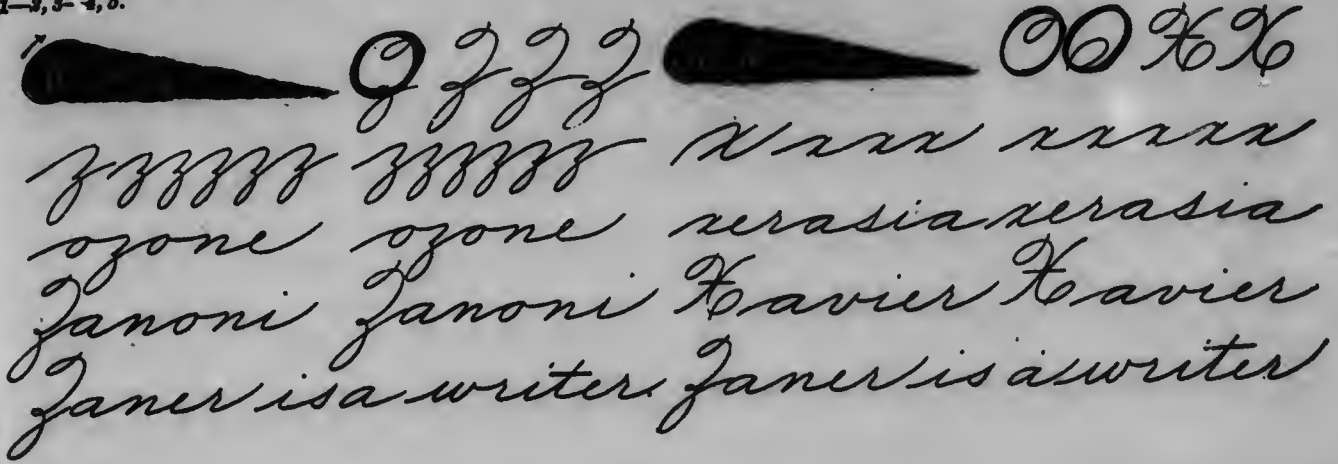 1—2, 3—4, 5.
Z Z Z Z X X
z z z z z z z z z z z z x x x x x x x x x
ozone ozone xerasia xerasia
Zanoni Zanoni Xavier Xavier
Zaner is a writer. Zaner is a writer